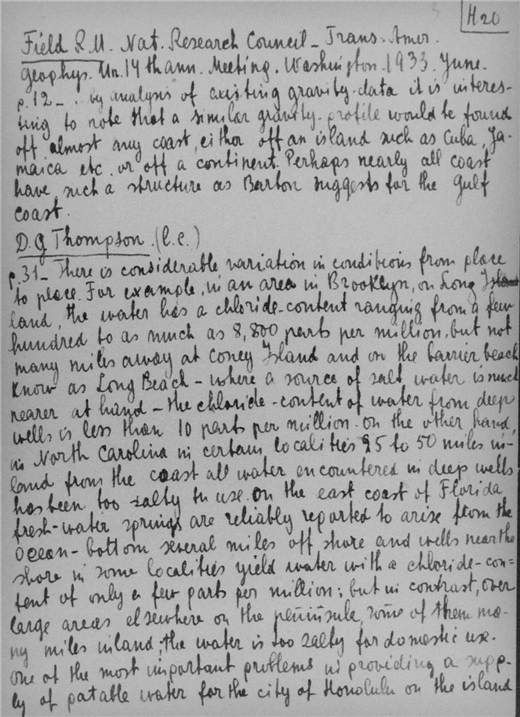 H20
Field R.M. Nat. Research Council - Trans. Amer.
Geophys. Un. 14th ann. Meeting. Washington 1933. June.
p.12 - . by analysis of existing gravity-data it is interes-
ting to note that a similar gravity-profile would be found
off almost any coast, either off an island such as Cuba, Ja-
maica etc. or off a continent. Perhaps nearly all coast
have such a structure as Barton suggests for the Gulf
coast.
D.G Thompson. (l.c.)
p.31 - There is considerable variation in conditions from place
to place. For example, in an area in Brooklyn, on Long Island
land, the water has a chloride-content ranging from a few
hundred to as much as 8,800 parts per million, but not
many miles away at Coney Island and on the barrier beach
know as Long Beach - where a source of salt water is much
nearer at hand - the chloride-content of water from deep
wells is less than 10 parts per million. on the other hand,
in North Carolina in certain localities 25 to 50 miles in-
land from the coast all water encountered in deep wells
has been too salty to use. on the east coast of Florida
fresh-water springs are reliably reported to arise from the
ocean-bottom several miles off shore and wells near the
shore in some localities yield water with a chloride-con-
tent of only a few parts per million; but in contrast, over
large areas elsewhere on the peninsule, some of them ma-
ny miles inland, the water is too salty for domestic use.
one of the most important problems in providing a supp-
ly of patable water for the city of Honolulu on the island